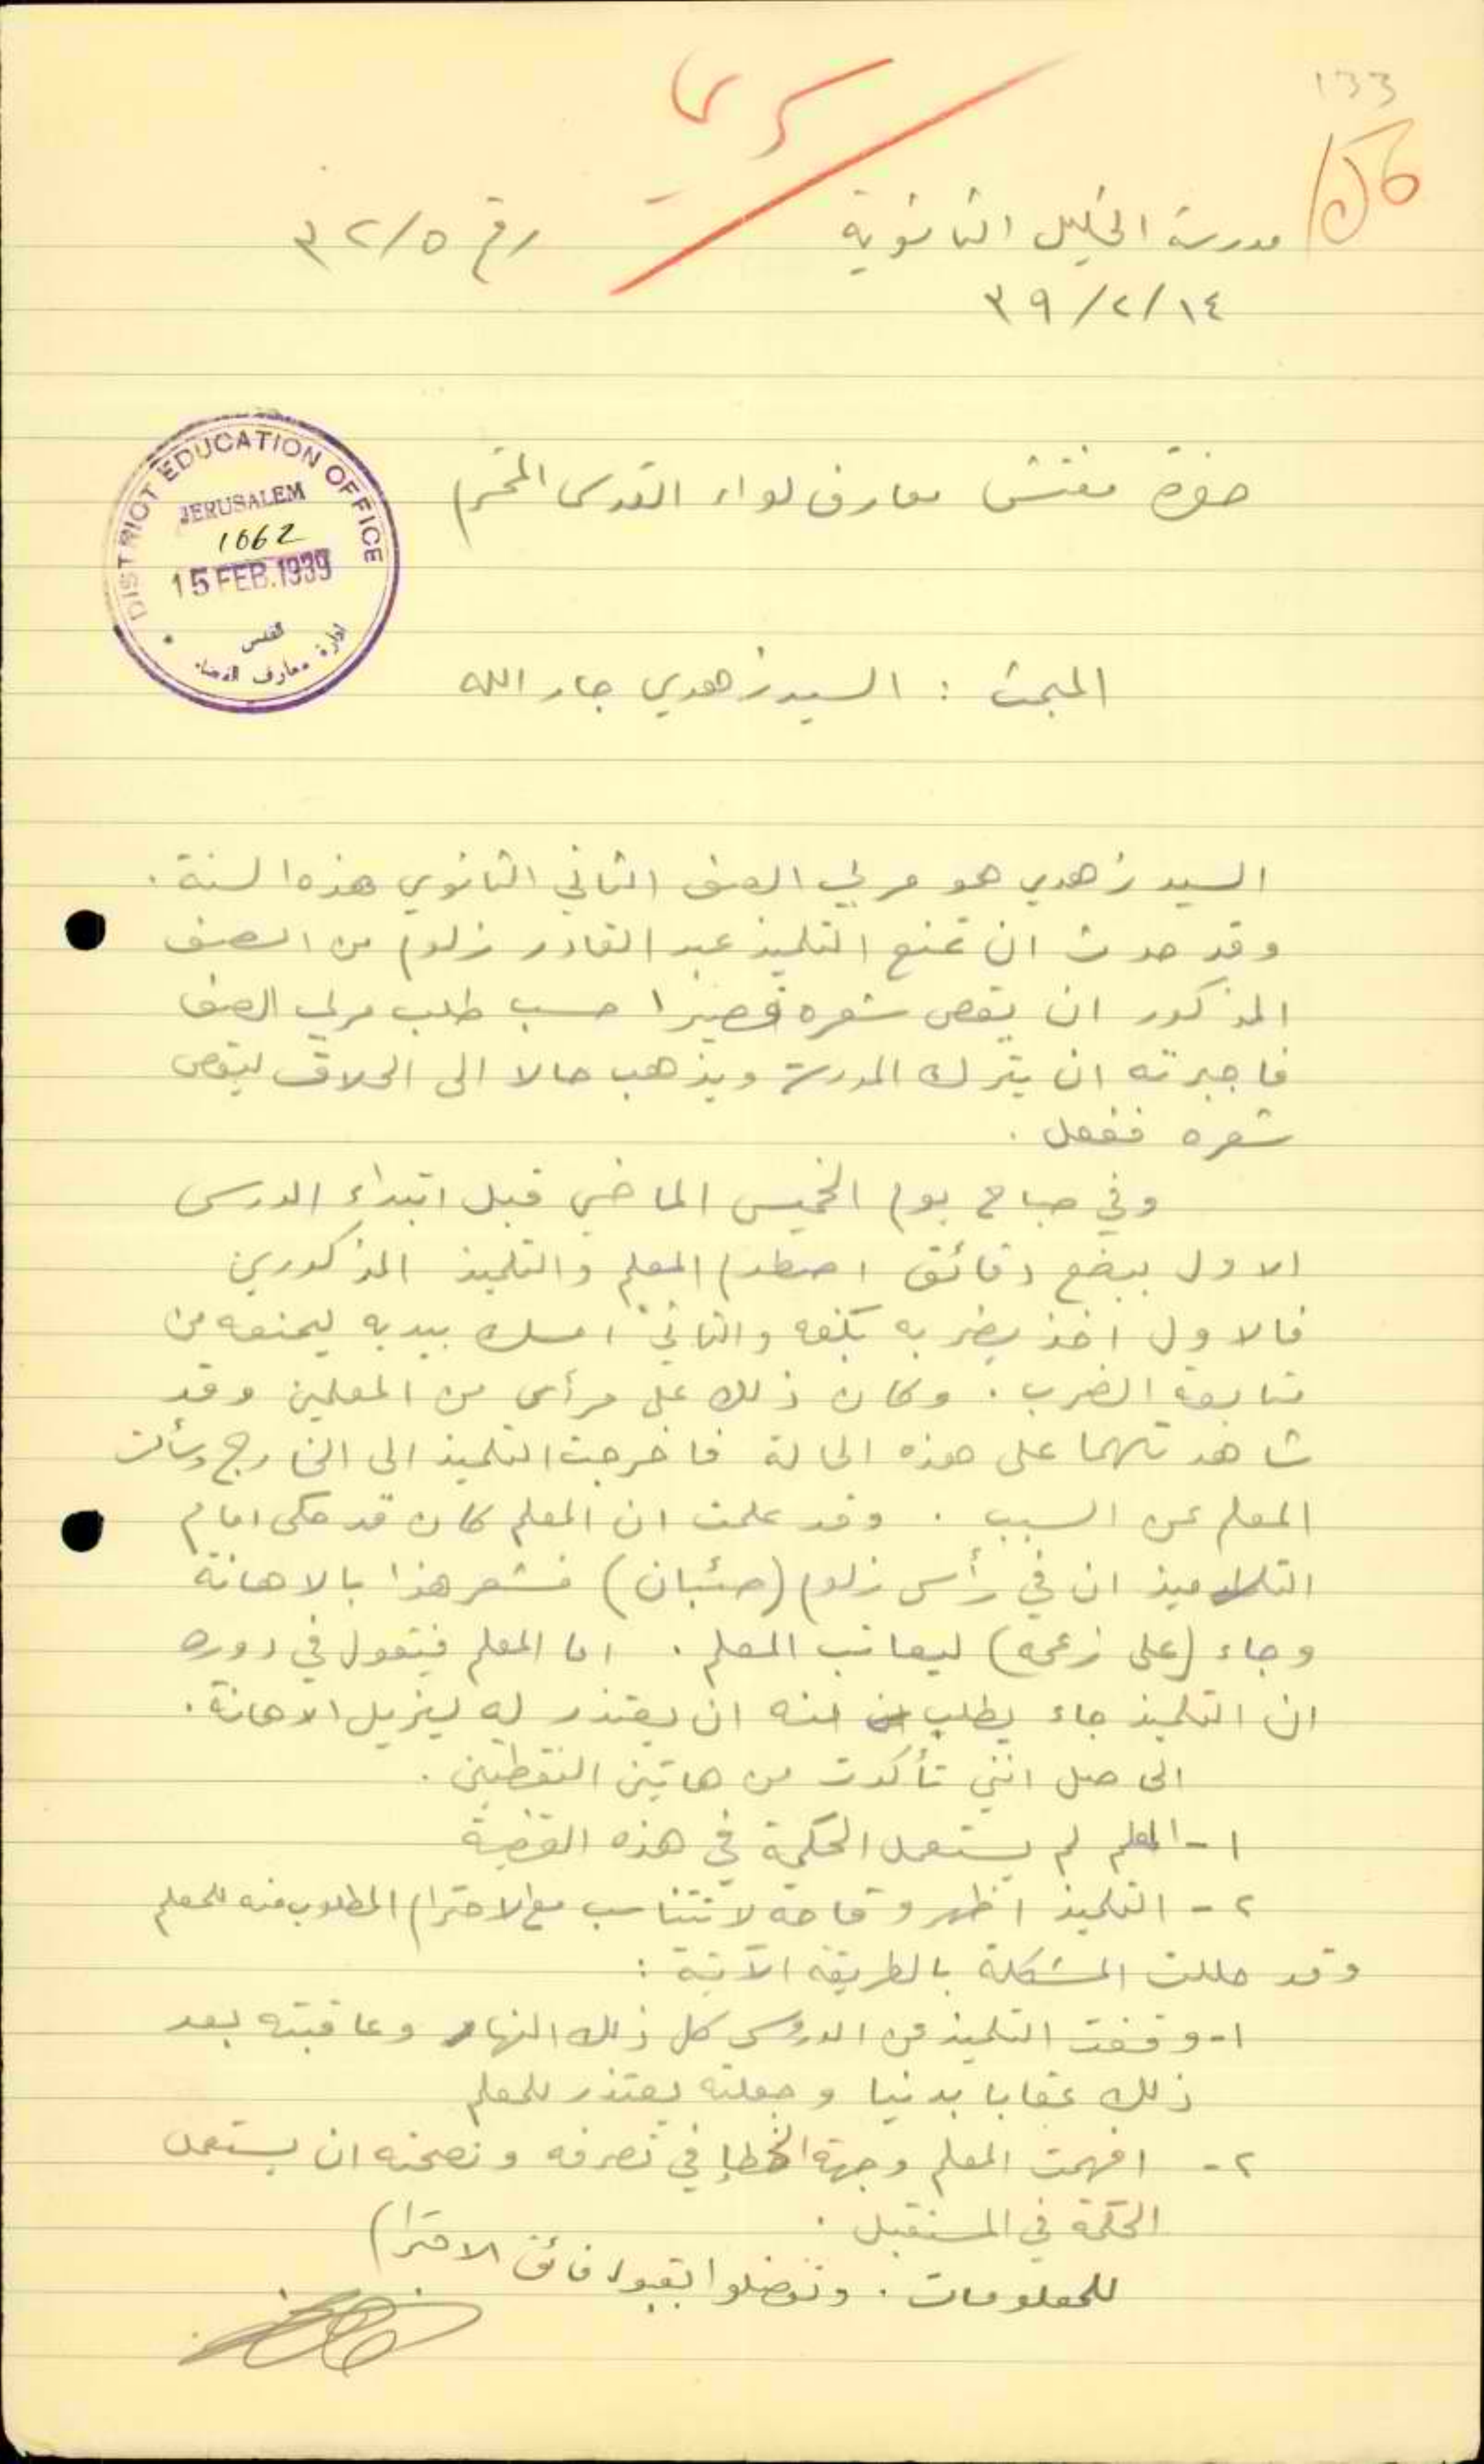 133
سري
156
مدرسة الخليل الثانوية
رقم ٣٢/٥
٣٩/٢/١٤
DISTRICT EDUCATION OFFICE
JERUSALEM
1662
15 FEB. 1939
القدس
ادارة معارف القضاء
حضرة مفتش معارف لواء القدس المحترم
المبحث : السيد زهدي جار الله
السيد زهدي هو مربي الصف الثاني الثانوي هذه السنة .
وقد حدث ان تمنع التلميذ عبد القادر زلوم من الصف
المذكور ان يقص شعره قصيرا حسب طلب مربي الصف
فاجبرته ان يترك المدرسة ويذهب حالا الى الحلاق ليقص
شعره ففعل .
وفي صباح يوم الخميس الماضي قبل ابتداء الدرس
الاول ببضع دقائق اصطدم المعلم والتلميذ المذكورين
فالاول اخذ يضربه بكفه والثاني امسك بيديه ليمنعه من
متابعة الضرب . وكان ذلك على مرأى من المعلمين وقد
شاهدتهما على هذه الحالة فاخرجت التلميذ الى الخارج وسألت
المعلم عن السبب . وقد علمت ان المعلم كان قد حكى امام
التلاميذ ان في رأس زلوم (صئبان) فشعر هذا بالاهانة
وجاء (على زعمه) ليعاتب المعلم . اما المعلم فيقول في دوره
ان التلميذ جاء يطلب منه ان يعتذر له ليزيل الاهانة .
الحاصل انني تأكدت من هاتين النقطتين .
١ - المعلم لم يستعمل الحكمة في هذه القضية
٢ - التلميذ اظهر وقاحة لا تتناسب مع الاحترام المطلوب منه للمعلم
وقد حللت المشكلة بالطريقة الآتية :
١- وقفت التلميذ من الدروس كل ذلك النهار وعاقبته بعد
ذلك عقابا بدنيا وجعلته يعتذر للمعلم
٢ - افهمت المعلم وجهة الخطإ في تصرفه ونصحته ان يستعمل
الحكمة في المستقبل .
للمعلومات . وتفضلوا بقبول فائق الاحترام